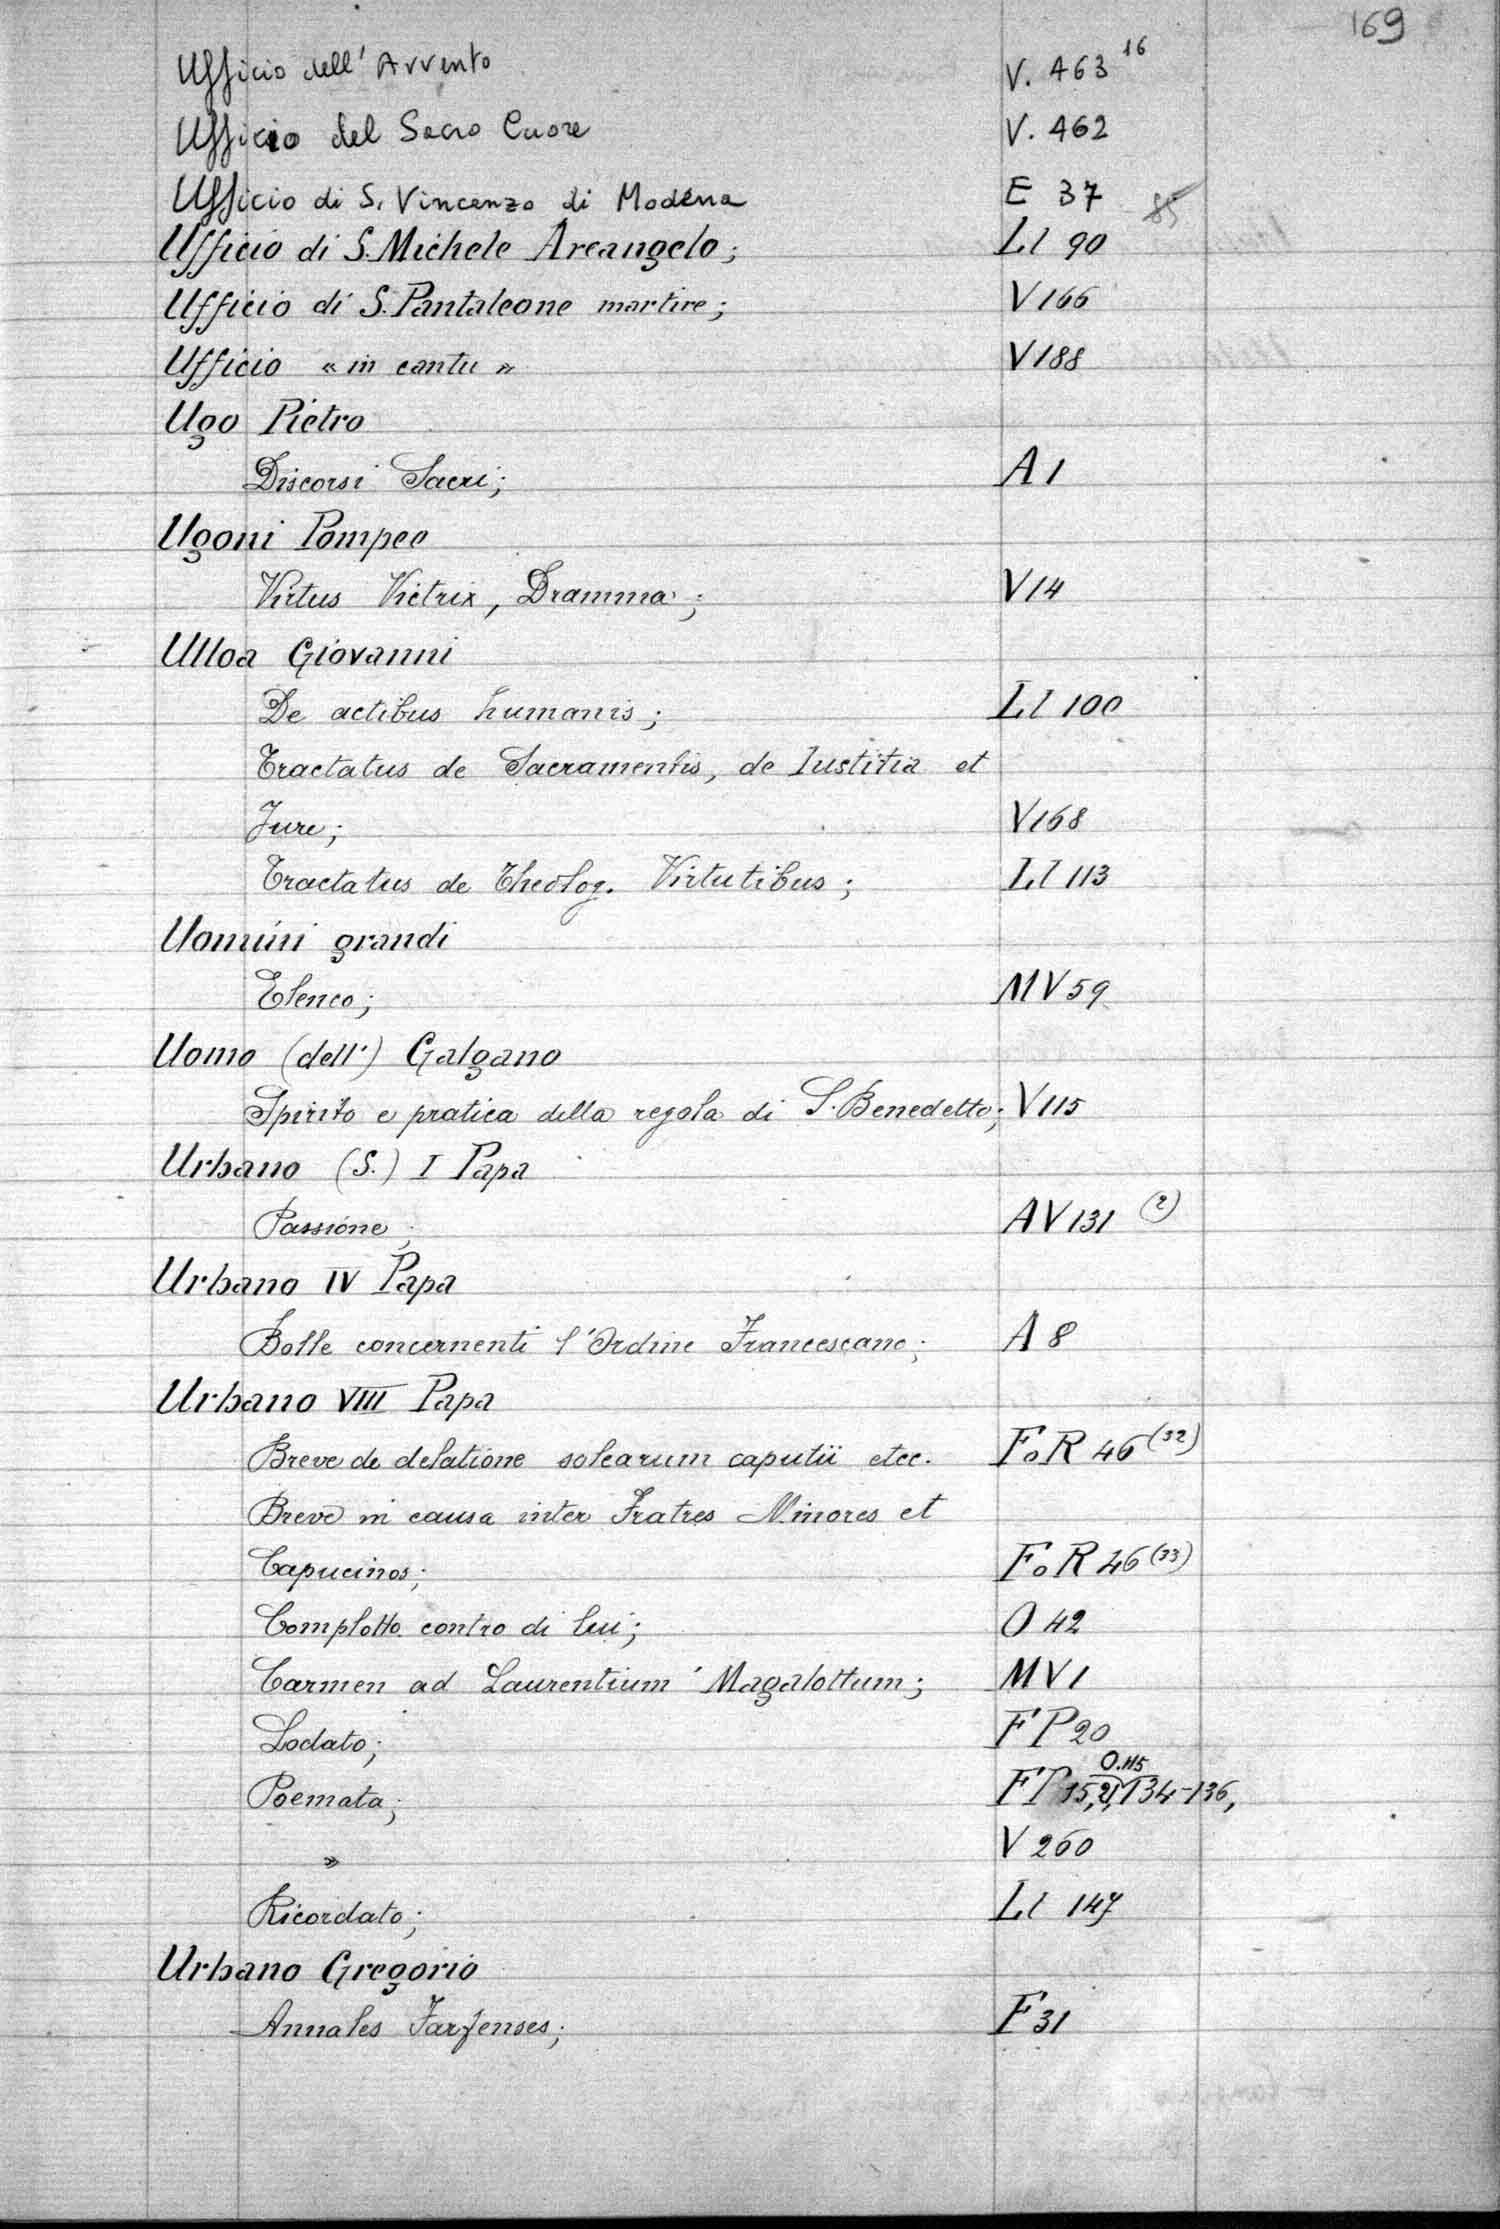 169
Ufficio dell'Avvento V. 463 16
Ufficio del Sacro Cuore V. 462
Ufficio di S. Vincenzo di Modena E 37 85
Ufficio di S. Michele Arcangelo; LI 90
Ufficio di S. Pantaleone martire; V 166
Ufficio « in cantu » V 188
Ugo Pietro
Discorsi Sacri; A 1
Ugoni Pompeo
Virtus Victrix, Dramma; V 14
Ulloa Giovanni
De actibus humanis; LI 100
Tractatus de Sacramentis, de Iustitia et
Jure; V 168
Tractatus de Theolog. Virtutibus; LI 113
Uomini grandi
Elenco; MV 59
Uomo (dell') Galgano
Spirito e pratica della regola di S. Benedetto; V 115
Urbano (S.) I Papa
Passione; AV 131 (2)
Urbano IV Papa
Bolle concernenti l'Ordine Francescano; A 8
Urbano VIII Papa
Breve de delatione solearum caputii etcc. Fo R 46 (32)
Breve in causa inter Fratres Minores et
Capucinos; Fo R 46 (33)
Complotto contro di lui; O 42
Carmen ad Laurentium Magalottum; MV 1
Lodato; FP 20
O.115
Poemata; FP 15, 21, 134-136,
» V 260
Ricordato; LI 147
Urbano Gregorio
Annales Farfenses; F 31